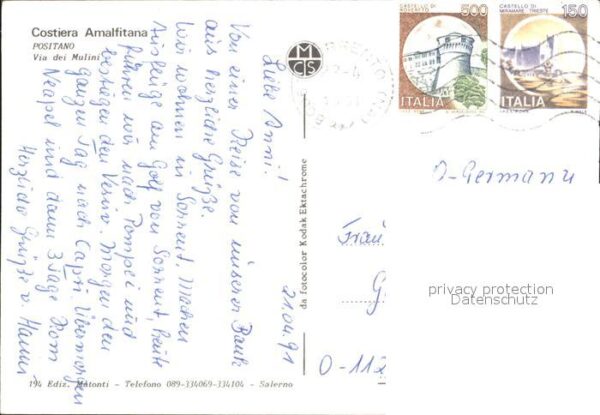 Costiera Amalfitana
POSITANO
Via dei Mulini
Liebe Anni!
21.04.91
Von einer Reise von unserer Bank
aus herzliche Grüße.
Wir wohnen in Sorrent. Machen
Ausflüge am Golf von Sorrent, heute
fuhren wir nach Pompei und
bestiegen den Vesuv. Morgen den
ganzen Tag nach Capri. Übermorgen
Neapel und dann 3 Tage Rom
Herzliche Grüße v. Hanni
194 Ediz. Matonti - Telefono 089-334069-334104 - Salerno
da fotocolor Kodak Ektachrome
MCS
CASTELLO DI ROVERETO
500
ITALIA
CASTELLO DI MIRAMARE TRIESTE
150
ITALIA
D-Germany
O-112
privacy protection
Datenschutz